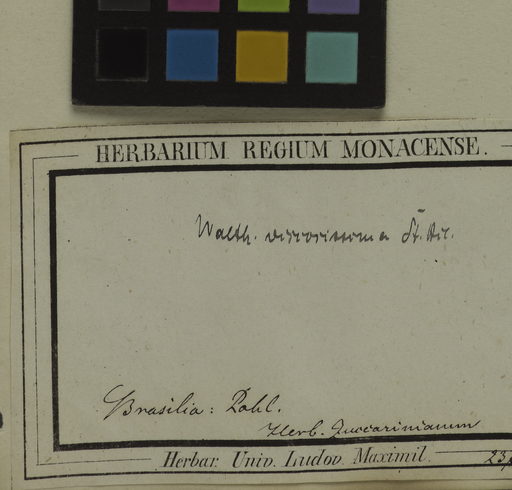 HERBARIUM REGIUM MONACENSE.
Walth. viscosissima St. Hil.
Brasilia: Pohl.
Herb. Zuccarinianum
Herbar. Univ. Ludov. Maximil.